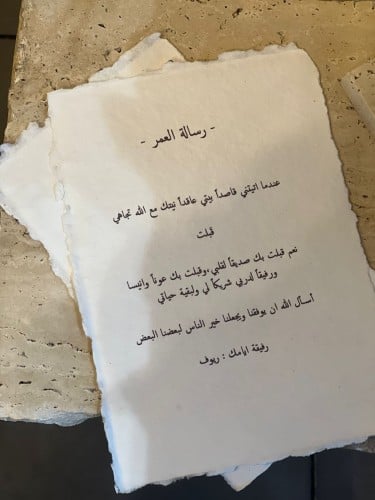 - رسالة العمر -
عندما اتيتني قاصداً بيتي عاقداً نيتك مع الله تجاهي
قبلت
نعم قبلت بك صديقاً لقلبي ،وقبلت بك عوناً وانيسا
ورفيقاً لدربي شريكاً لي ولبقية حياتي
أسأل الله ان يوفقنا ويجعلنا خير الناس لبعضنا البعض
رفيقة ايامك : ريوف